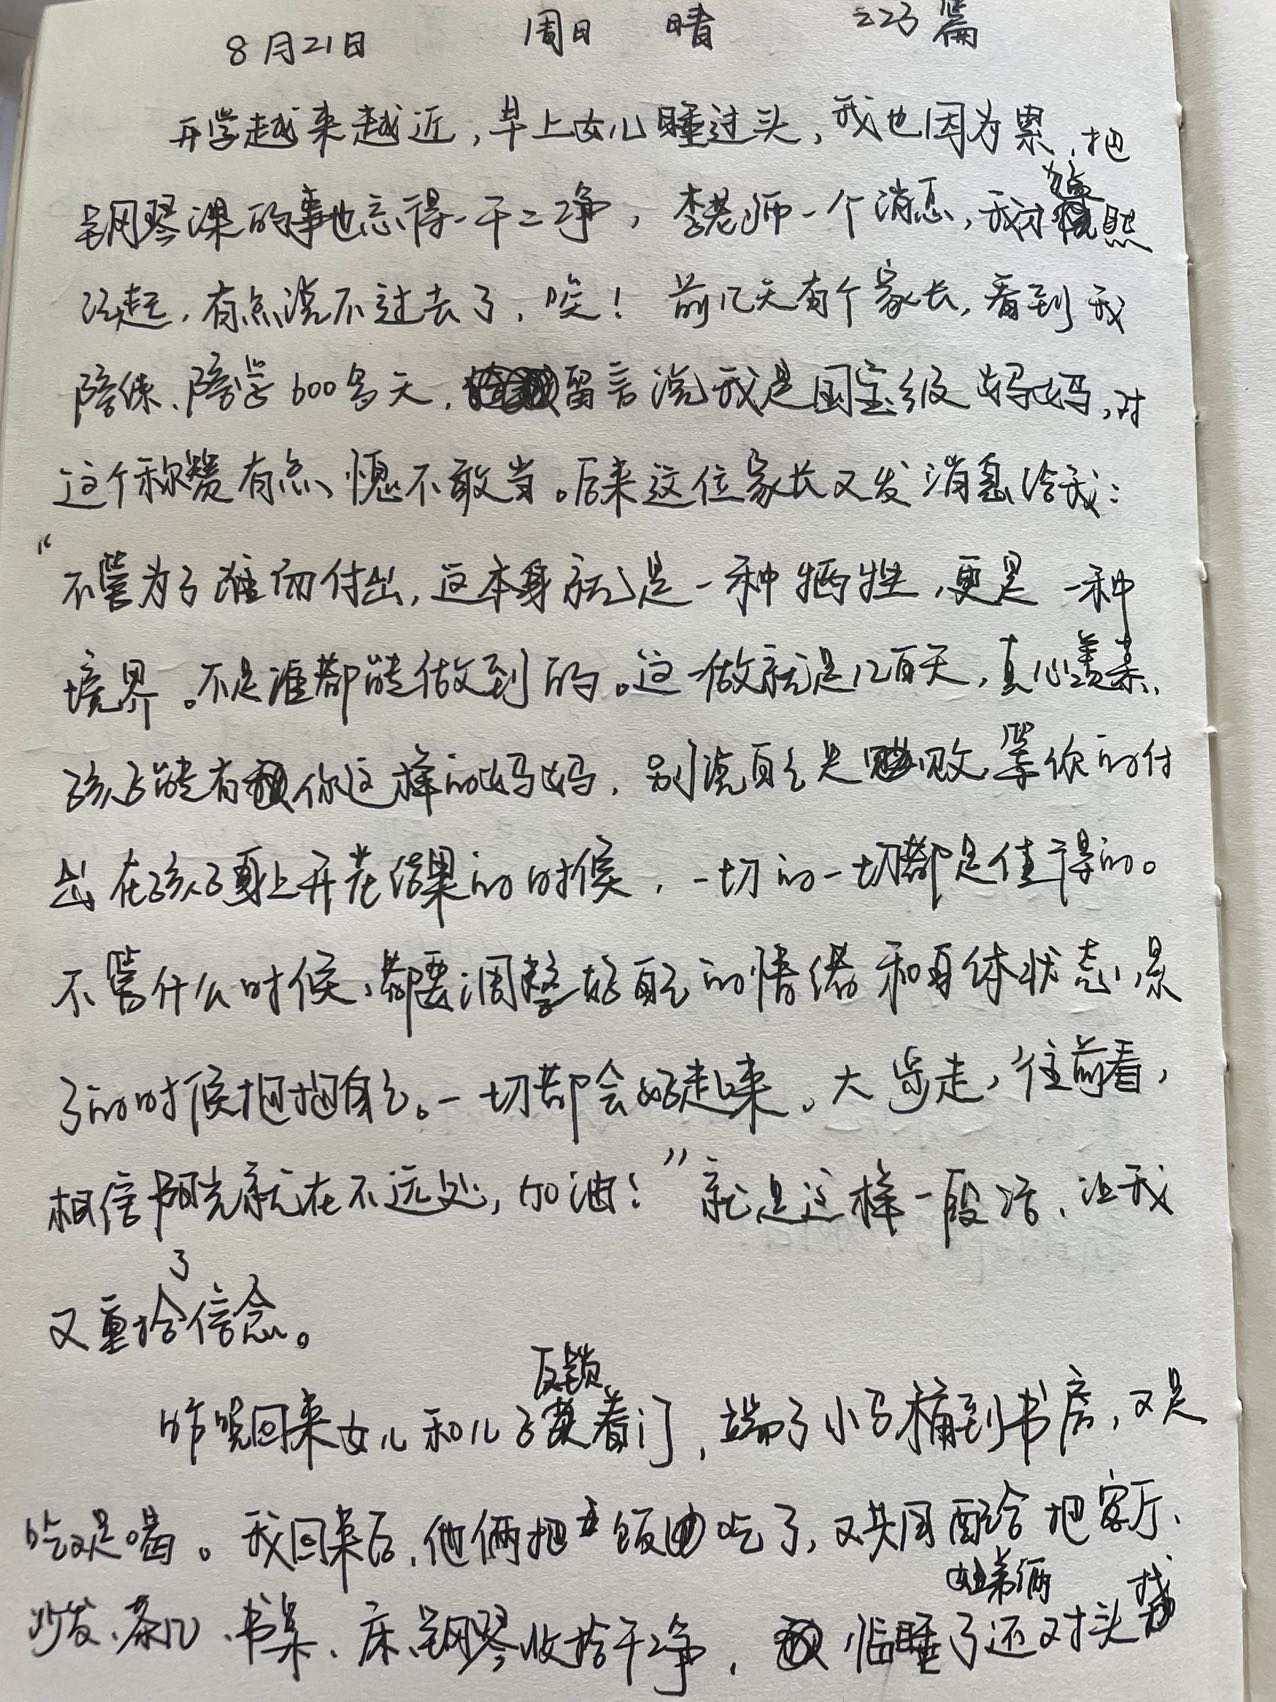 8月21日 周日 晴 223篇
开学越来越近,早上女儿睡过头,我也因为累,把
钢琴课的事也忘得一干二净,李老师一个消息,我才猛然
记起,有点说不过去了,唉!前几天有个家长,看到我
陪练、陪学600多天,留言说我是国宝级妈妈,对
这个称赞有点愧不敢当。后来这位家长又发消息给我:
“不管为了谁而付出,这本身就是一种牺牲,更是一种
境界。不是谁都能做到的。这一做就是几百天,真心羡慕,
孩子能有你这样的妈妈,别说自己失败,等你的付
出在孩子身上开花结果的时候,一切的一切都是值得的。
不管什么时候,都要调整好自己的情绪和身体状态,累
了的时候抱抱自己。一切都会好起来,大步走,往前看,
相信阳光就在不远处,加油!”就是这样一段话,让我
又重拾了信念。
昨晚回来女儿和儿子反锁着门,端了小马桶到书房,又是
吃又是喝。我回来后,他俩把饭吃了,又共同配合把客厅、
沙发、茶几、书桌、床、钢琴收拾干净,临睡了姐弟俩还对头